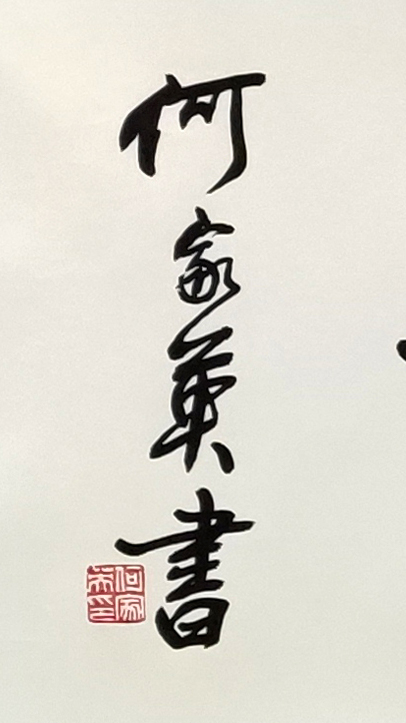 何家英書
何家英印